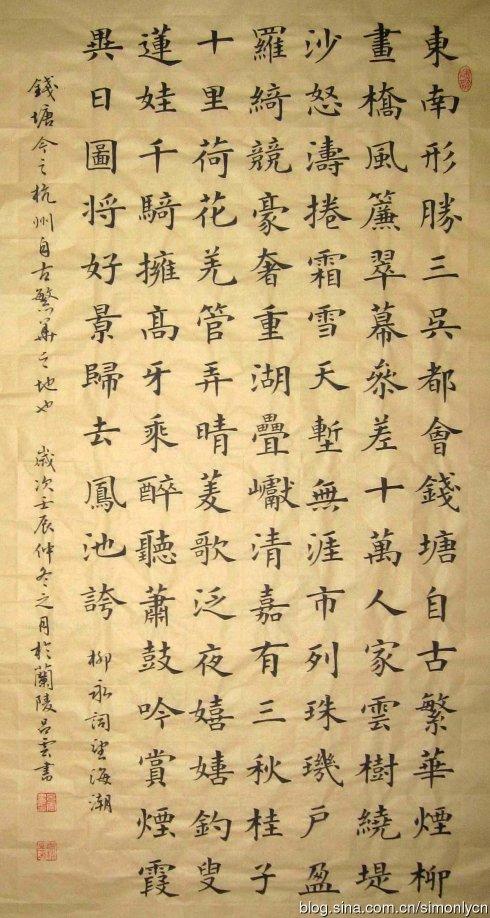 東南形勝三吳都會錢塘自古繁華煙柳
畫橋風簾翠幕參差十萬人家雲樹繞堤
沙怒濤捲霜雪天塹無涯市列珠璣戶盈
羅綺競豪奢重湖疊巘清嘉有三秋桂子
十里荷花羌管弄晴菱歌泛夜嬉嬉釣叟
蓮娃千騎擁髙牙乘醉聽蕭鼓吟賞煙霞
異日圖將好景歸去鳳池誇
柳永詞望海潮
錢塘今之杭州自古繁華之地也 歲次壬辰仲冬之月於蘭陵呂雲書
blog.sina.com.cn/simonlycn